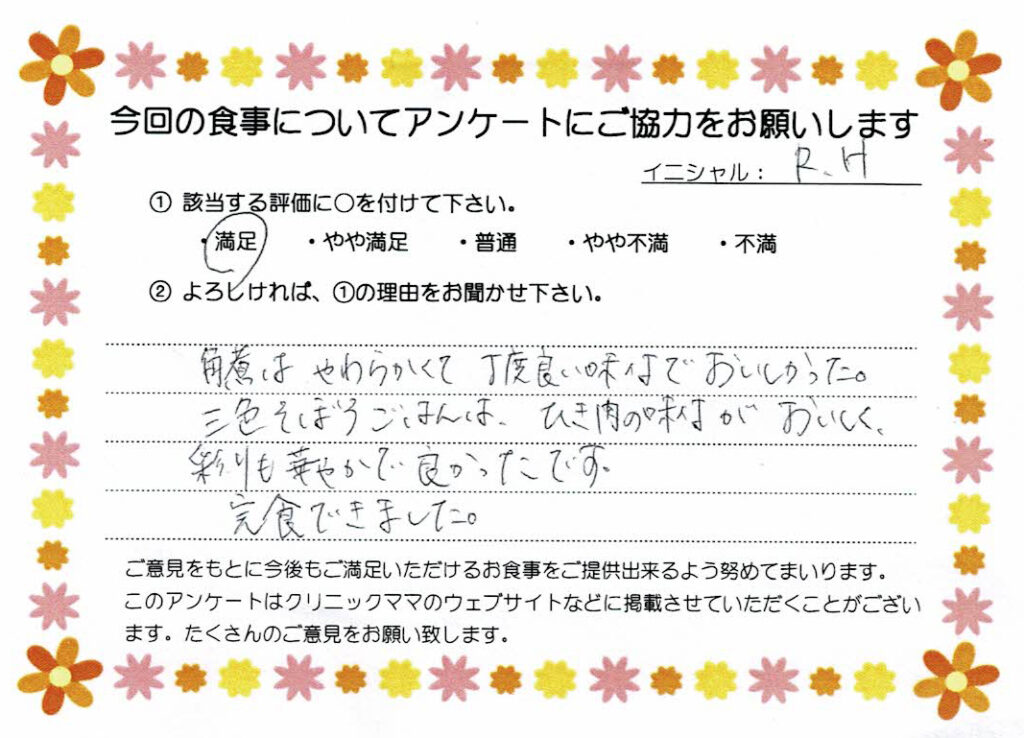 今回の食事についてアンケートにご協力をお願いします
イニシャル： R.H
① 該当する評価に○を付けて下さい。
・満足 ・やや満足 ・普通 ・やや不満 ・不満
② よろしければ、①の理由をお聞かせ下さい。
角煮は やわらかくて 丁度良い味付でおいしかった。
三色そぼろごはんは、ひき肉の味付が おいしく、
彩りも華やかで良かったです。
完食できました。
ご意見をもとに今後もご満足いただけるお食事をご提供出来るよう努めてまいります。
このアンケートはクリニックママのウェブサイトなどに掲載させていただくことがござい
ます。たくさんのご意見をお願い致します。